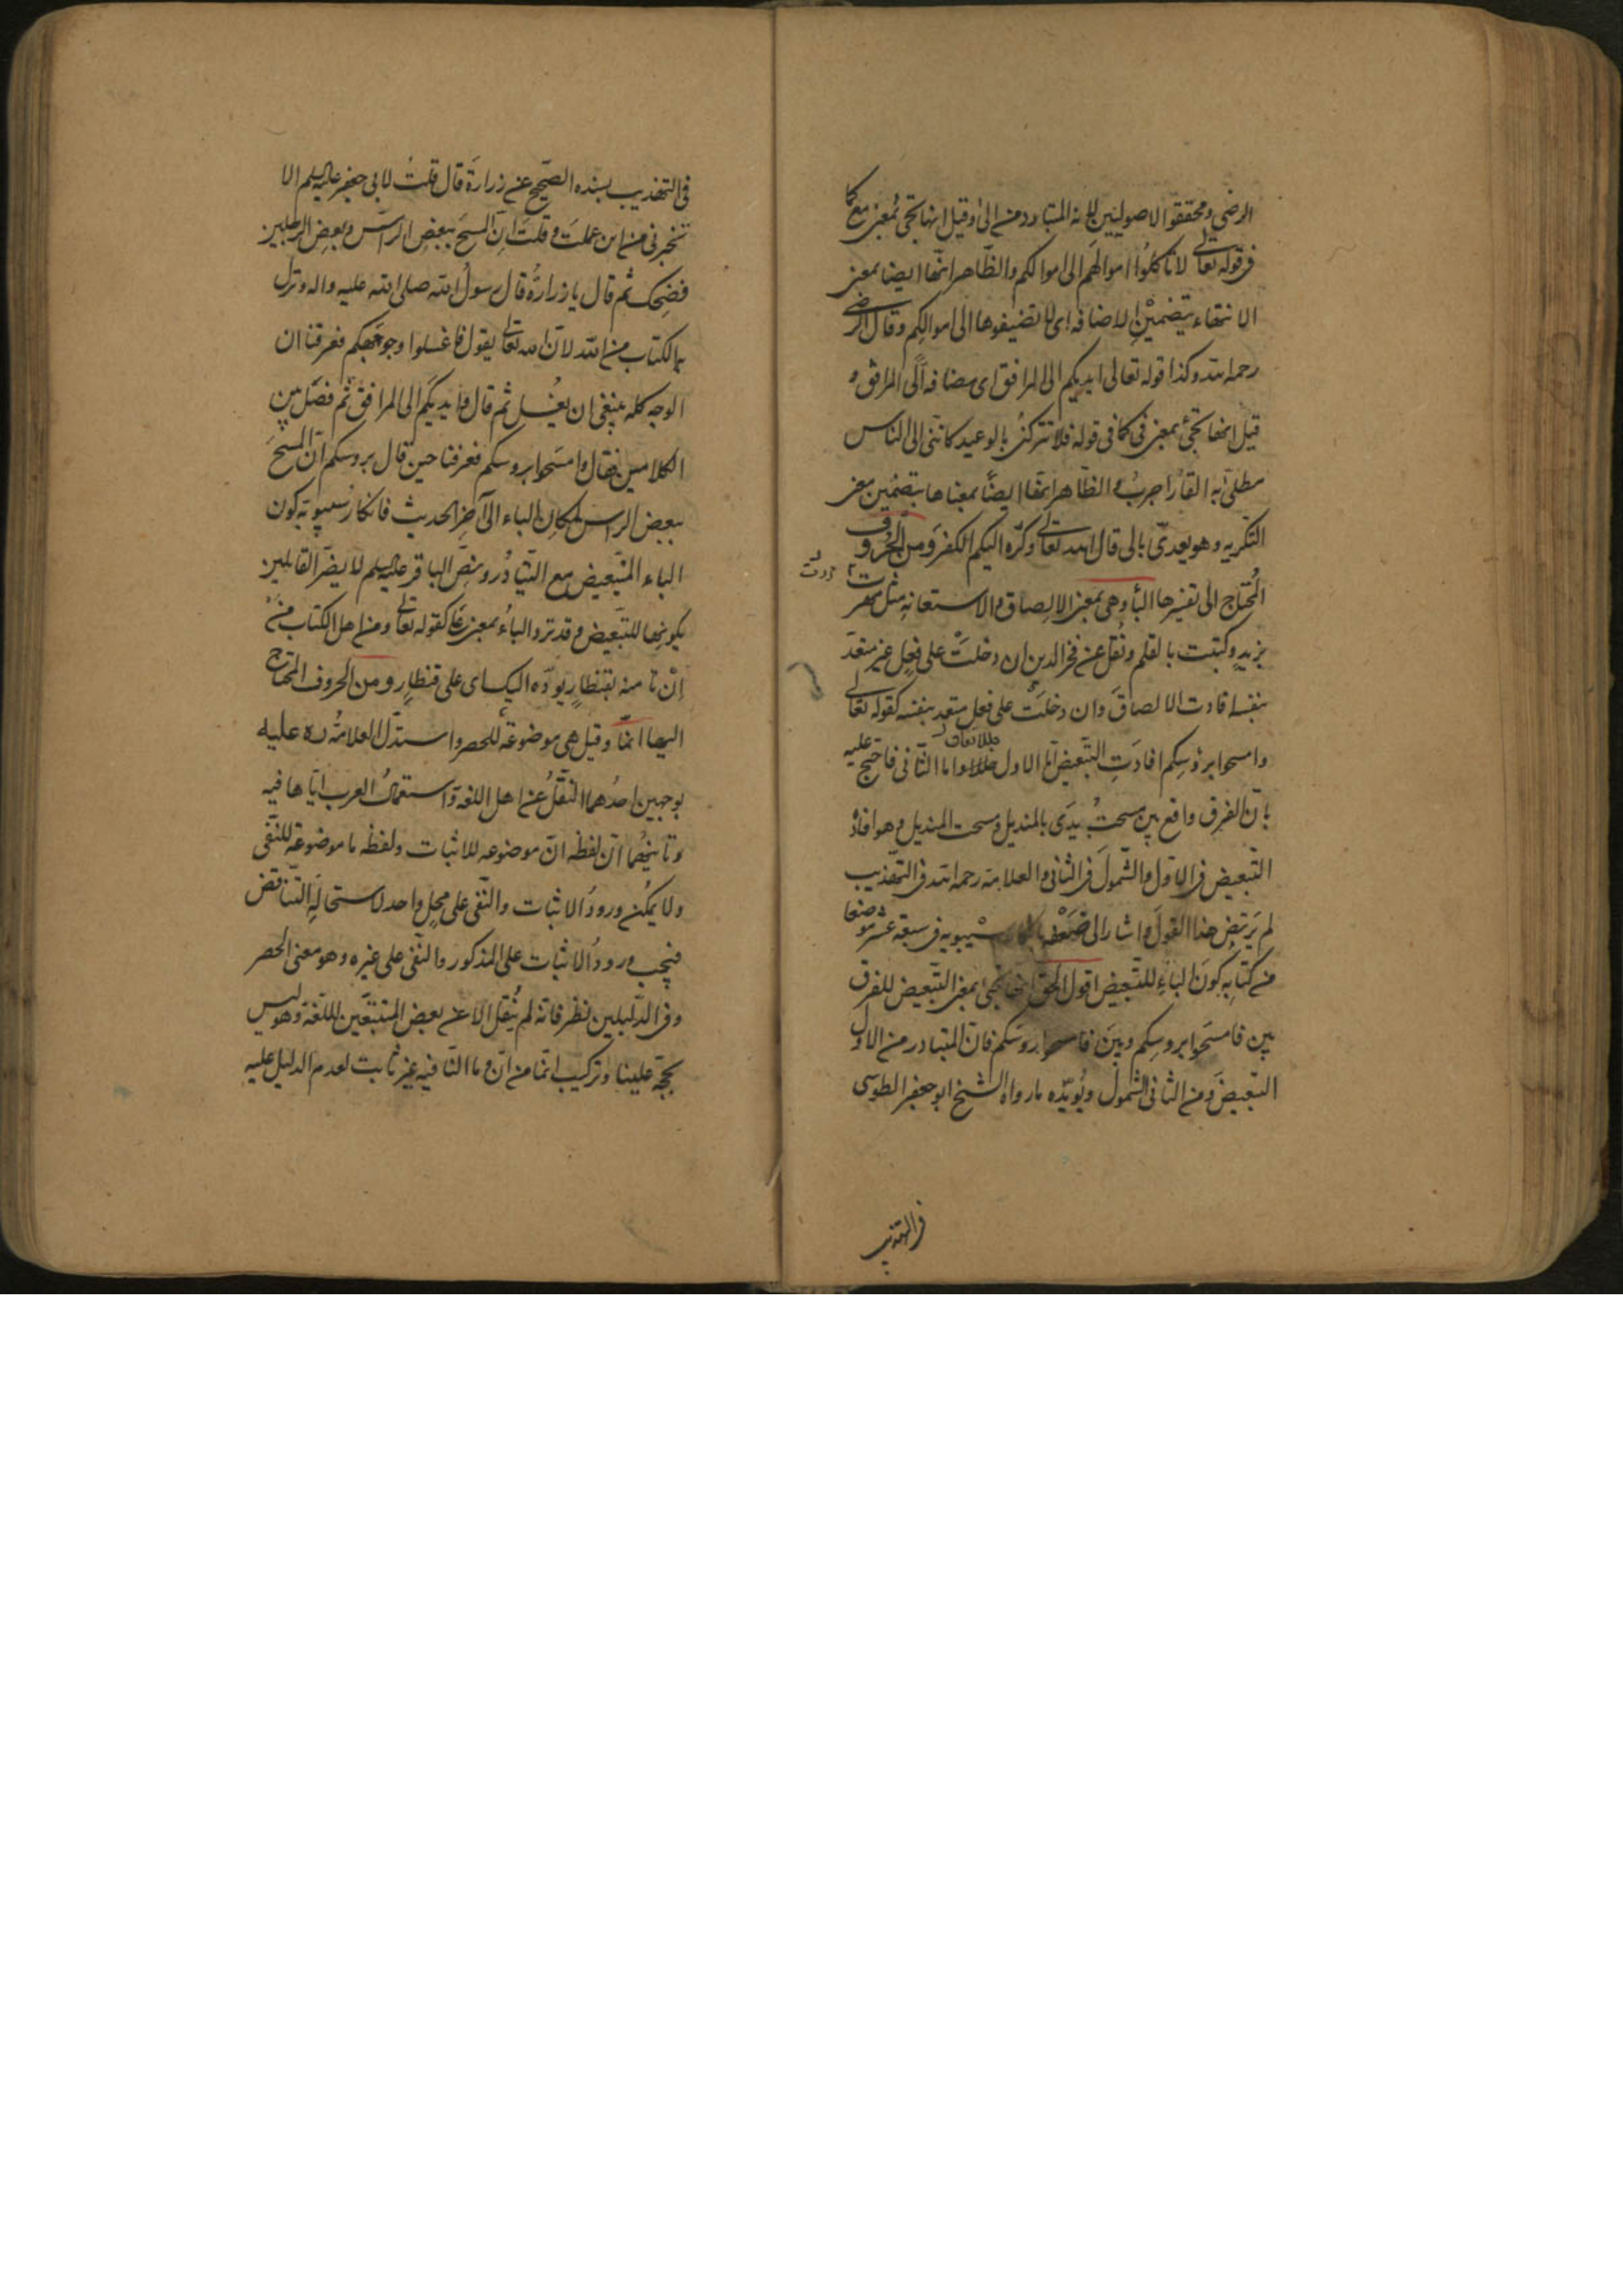 الرضي ومحققوا الاصوليين لانه المتبادر من الى وقيل انها تجئ بمعنى مع كما
في قوله تعالى لا تاكلوا اموالهم الى اموالكم والظاهر انها ايضا بمعنى
الانتهاء بتضمين الاضافه اى لا تضيفوها الى اموالكم وقال الرضي
رحمه الله وكذا قوله تعالى ايديكم الى المرافق اى مضافة الى المرافق و
قيل انها تجئ بمعنى في كما في قوله فلا تتركنى بالوعيد كاننى الى الناس
مطلى به القار اجرب والظاهر انها ايضًا بمعناها بتضمين معنى
التكريه وهو يعدىّ بالى قال الله تعالى وكرّه اليكم الكفر ومن الحروف
المحتاج الى تفسيرها الباء وهى بمعنى الالصاق والاستعانه مثل مررت
بزيدٍ وكتبت بالقلم ونُقل عن فخر الدين ان دخلتْ على فعِل غير متعدّ
بنفسه افادت الالصاق وان دخلَتْ على فعلٍ متعدٍ بنفسه كقوله تعالى
وامسحوا برؤسِكم افادَتِ التّبعيض امّا الاول فبالاتفاق واما الثّانى فاحتج عليه
بانّ الفرق واقع بين مسحتُ يدَى بالمنديل ومسحت المنديل وهو افادة
التّبعيض في الاوّل والشّمولَ في الثانى والعلامة رحمه الله في التهذيب
لم يَرتضِ هذا القولَ واشار الى ضَعْفه بانكار سيبويه في سبعة عشر موضعا
من كتابِه كونَ الباءِ للتّبعيض اقول الحق انها تجئ بمعنى التّبعيض للفرق
بين فامسحَوا بروسِكم وبين فامسحوا روسَكم فانّ المتبادر من الاوّل
التبعيضَ ومن الثانى الشّمولُ ويُويّده ما رواه الشيخ ابو جعفر الطوسى
في التهذيب
في التهذيب بسنده الصّحيح عن زرارة قال قلتُ لابى جعفر عليه السلم الا
تخبرنى من اين عملتَ وقلتَ انّ المسحَ ببعض الرّاس وبعض الرجلين
فضِحك ثم قال يا زرارةُ قال رسولُ الله صلى الله عليه واله ونزل
به الكتاب من الله لانّ الله تعالى يقول فاغسلوا وجوهكم فعرفنا ان
الوجه كله ينبغى ان يُغسل ثم قال وايديكَم الى المرافق ثم فصّل بين
الكلامين فقال وامسَحوا بروسكم فعرفنا حين قال بروسكم انّ المسحَ
ببعض الراس لمكانِ الباء الى آخِر الحديث فانكار سيبويه كون
الباء للتّبعيض مع التّبادُر ونصّ الباقر عليه السلم لا يضرّ القايلين
بكونها للتّبعيض وقد ترد الباءُ بمعنى على كقوله تعالى ومن اهل الكتاب من
اِنْ تامنه بقنطارٍ يودّه اليك اى على قنطارٍ ومن الحروف المحتاج
اليها انّما وقيل هى موضوعةٌ للحصر واستدلّ العلامةُ ره عليه
بوجهين احدُهما النّقلُ عن اهل اللغة واستعمالُ العرب ايّاها فيه
وثانيهُما انّ لفظة انّ موضوعه للاثبات ولفظة ما موضوعة للنّفى
ولا يمكُن ورودُ الاثبات والنّفى على محِلٍ واحد لاستحالَةِ التّناقض
فيجب ورودُ الاثبات على المذكور والنفى على غيره وهو معنى الحصر
وفي الدّليلين نظر فانّه لم يُنقل الا عن بعض المتتبّعين للّغة وهو ليس
بحجّة علينا وتركيب انّما من انّ وما النّافيه غير ثابت لعدم الدليل عليه